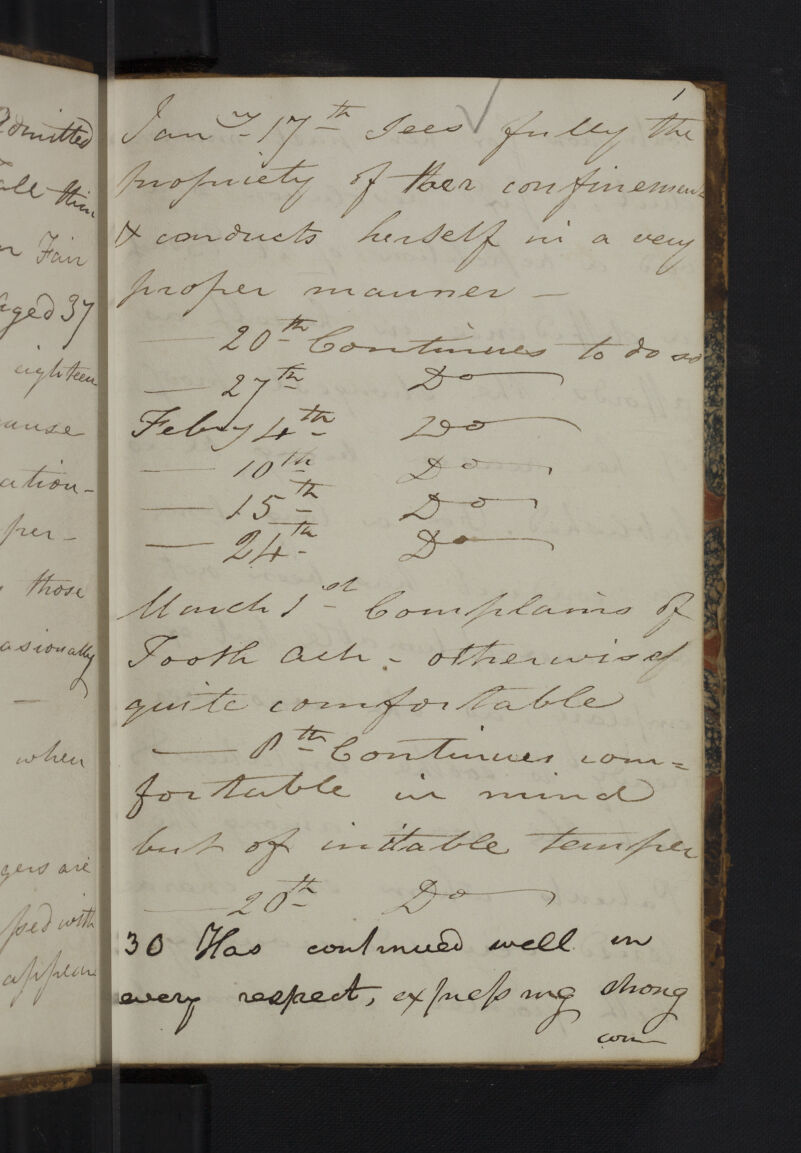 Admitted
Fair
aged 37
eighteen
cause
ation-
per-
those
asionally
when
gers are
psed with
appear
1
Jany 17th Sees fully the
propriety of her confinement
& conducts herself in a very
proper manner —
— 20th Continues to do so
— 27th Do
Feby 4th Do
— 10th Do
— 15th Do
— 24th Do
March 1st Complains of
Tooth Ach - otherwise
quite comfortable
— 8th Continues com=
fortable in mind
but of irritable temper
— 20th Do
30 Has continued well in
every respect, expressing strong
com